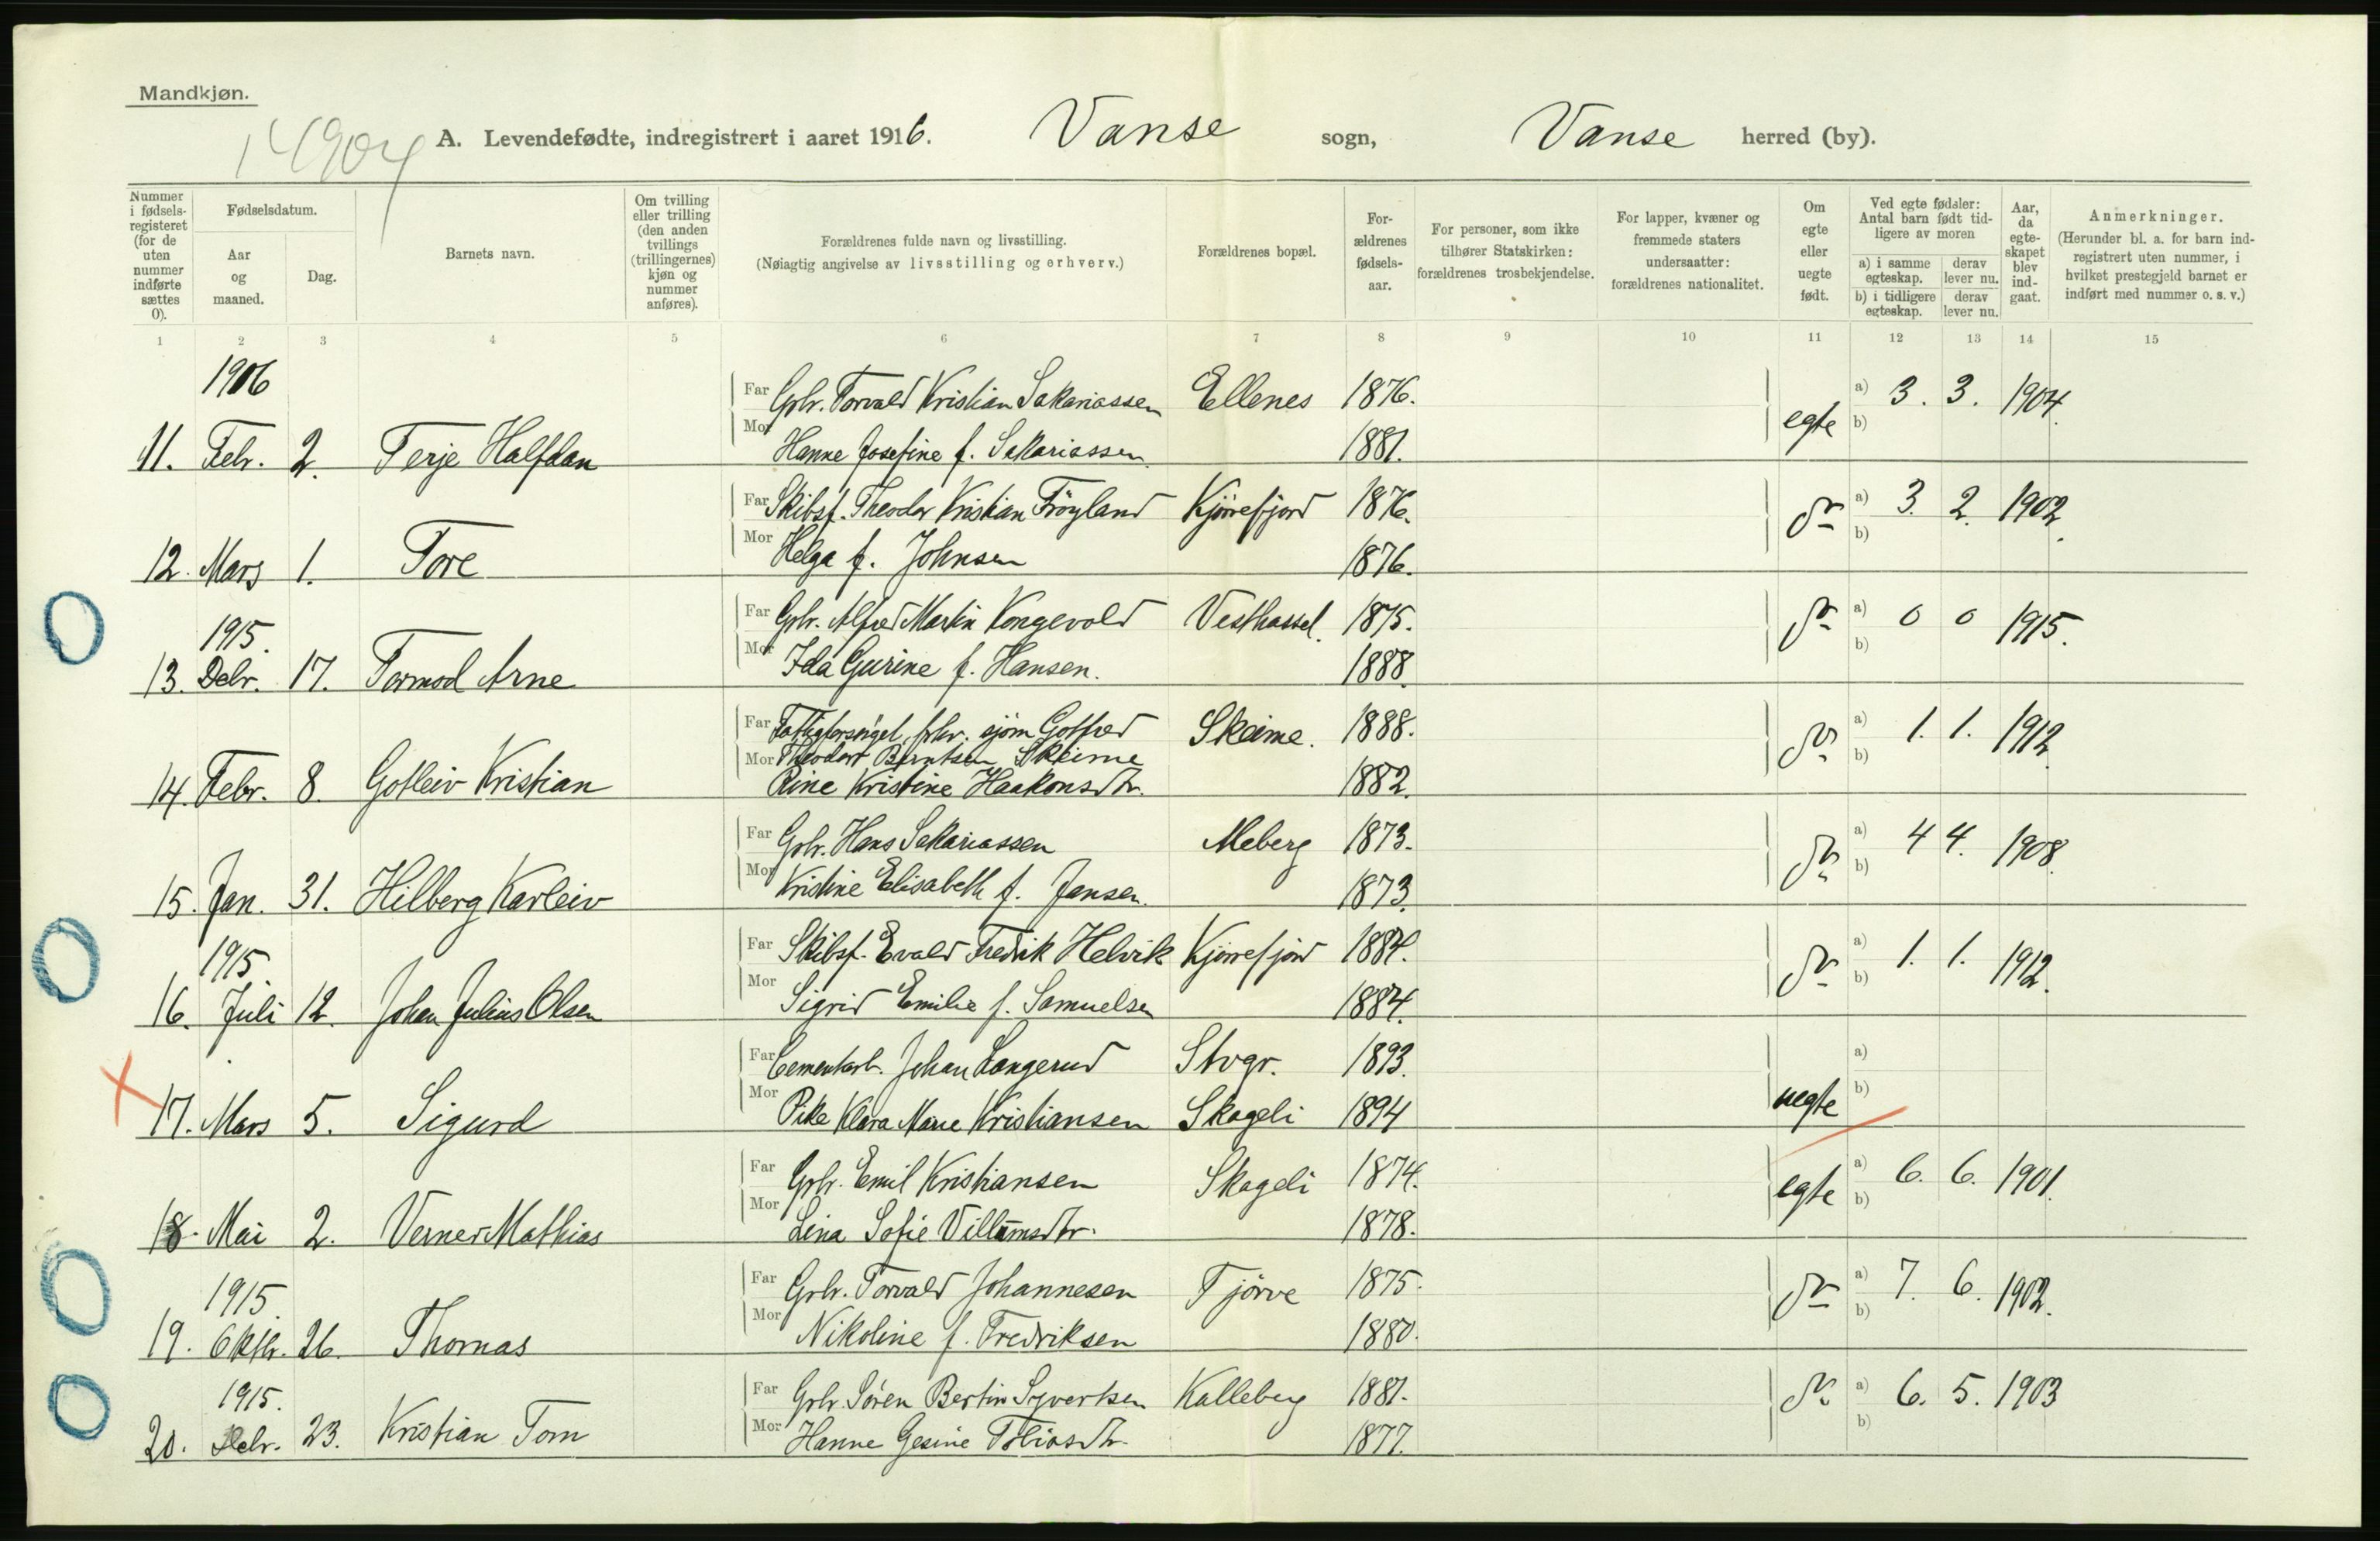 Mandkjøn.
14904
A. Levendefødte, indregistrert i aaret 1916. Vanse sogn, Vanse herred (by).
Nummer i fødsels-registeret (for de uten nummer indførte sættes 0).
Fødselsdatum.
Aar og maaned.
Dag.
Barnets navn.
Om tvilling eller trilling (den anden tvillings (trillingernes) kjøn og nummer anføres).
Forældrenes fulde navn og livsstilling.
(Nøiagtig angivelse av livsstilling og erhverv.)
Forældrenes bopæl.
For-ældrenes fødsels-aar.
For personer, som ikke tilhører Statskirken: forældrenes trosbekjendelse.
For lapper, kvæner og fremmede staters undersaatter: forældrenes nationalitet.
Om egte eller uegte født.
Ved egte fødsler: Antal barn født tid-ligere av moren
a) i samme egteskap. derav lever nu.
b) i tidligere egteskap. derav lever nu.
Aar, da egte-skapet blev ind-gaat.
Anmerkninger.
(Herunder bl. a. for barn ind-registrert uten nummer, i hvilket prestegjeld barnet er indført med nummer o. s. v.)
1 2 3 4 5 6 7 8 9 10 11 12 13 14 15
1916
Far Grbr. Torvald Kristian Sakariassen Ellenes 1876. a) 3. 3. 1904.
11. Febr. 2. Terje Halfdan Mor Hanne Josefine f. Sakariassen 1881. egte b)
Far Skibsf. Theodor Kristian Frøyland Kjørrefjord 1876. do a) 3. 2. 1902.
12. Mars 1. Tore Mor Helga f. Johnsen 1876. b)
1915.
Far Grbr. Alfred Martin Kongevold Vesthassel. 1875. do a) 0 0 1915.
13. Debr. 17. Tormod Arne Mor Ida Gurine f. Hansen. 1888. b)
Far Fattigforsørget, frhv. sjøm Gotfred Skeime. 1888. do a) 1. 1. 1912.
Mor Theodor Berntsen Skeime b)
14. Febr. 8. Gotleiv Kristian Rine Kristine Haakonsdtr. 1882.
Far Grbr. Hans Sakariassen Meberg 1873. do a) 4 4. 1908.
15. Jan. 31. Hilberg Karleiv Mor Kristine Elisabeth f. Jansen. 1873. b)
1915.
Far Skibsf. Evald Fredrik Helvik Kjørrefjord 1884. do a) 1. 1. 1912.
16. Juli 12. Johan Julius Olsen Mor Sigrid Emilie f. Samuelsen 1884. b)
Far Cementarb. Johan Langerud Stvgr. 1893. a)
17. Mars 5. Sigurd Mor Pike Klara Marie Kristiansen Skageli 1894 uegte b)
Far Grbr. Emil Kristiansen Skageli 1874. egte a) 6. 6. 1901.
18. Mai 2. Verner Mathias Mor Lina Sofie Villumsdtr. 1878. b)
1915.
Far Grbr. Torvald Johannesen Tjørve 1875. do a) 7. 6. 1902.
19. Oktbr. 26. Thomas Mor Nikoline f. Fredriksen 1880. b)
1915.
Far Grbr. Søren Bertin Syvertsen Kalleberg 1881. do a) 6. 5. 1903
20. Debr. 23. Kristian Tom Mor Hanne Gesine Tobiasdtr. 1877. b)